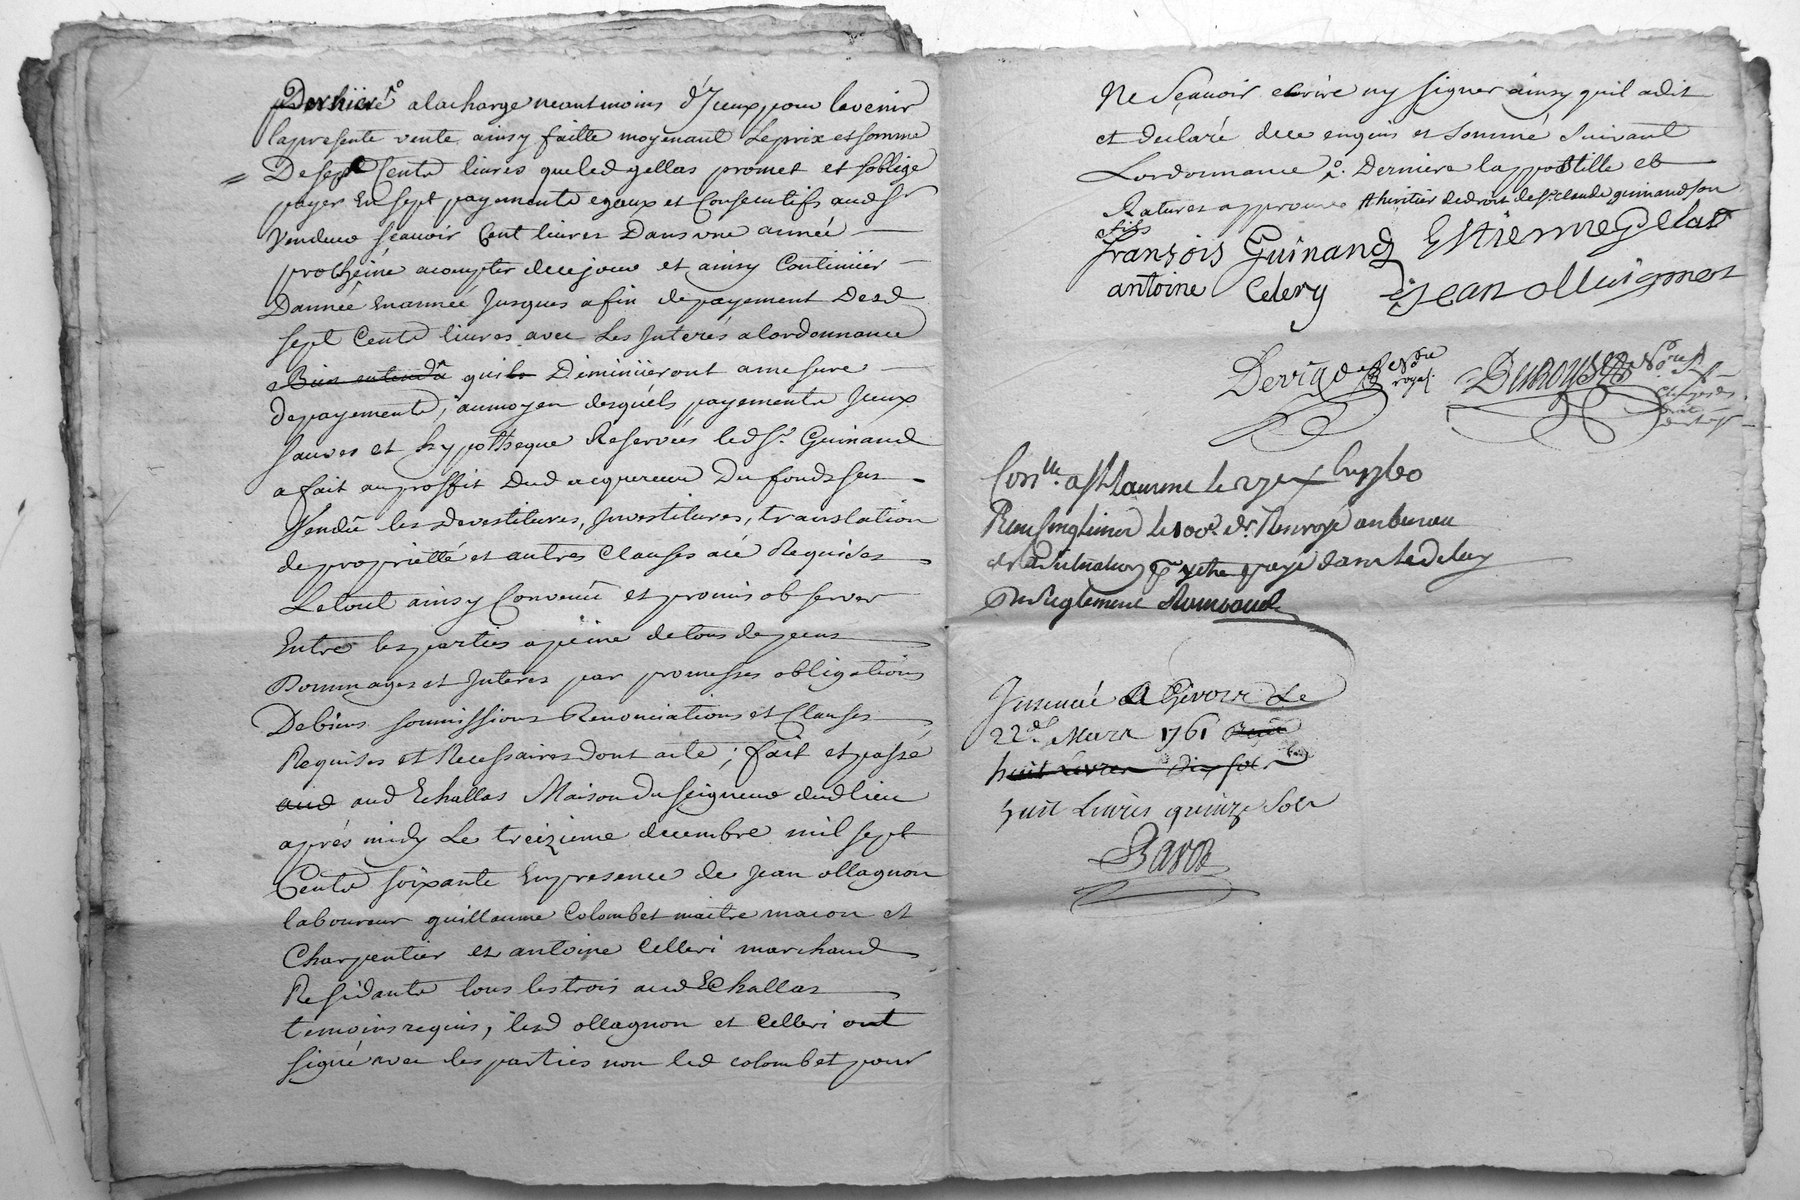 Derniere alacharge neantmoins d'Jceux pour lavenir
lapresente vente ainsy faitte moyenant Leprix et somme
De sept Cents livres queled gellas promet et soblige
payer En sept payements egaux et Consecutifs aud Sr
Vendeur scauoir Cent livres Dans une année
procheine acompter decejour et ainsy Continüer
Dannée enannée Jusques afin depayement Desd
sept Cents livres avec Les Interés alordonnance
Bien entendû quils Diminüeront amesure
depayements, aumoyen desquels payements Jceux
sauves et hypotheque Reservées led Sr. Guinand
afait auproffit Dud acquereur Du fonds sus
Vendû les Devestitures, Jnvestitures, translation
de proprietté et autres Clauses aïé Requises
Letout ainsy Convenû et promis observer
Entre lesparties apeine detous depens
Dommages et Jnteres par promesses obligations
Debiens soumissions Renonciations et Clauses
Requises et Necessaires dont acte; fait et passé
aud aud Echallas Maison du seigneur dudlieu
aprés midy Le treizieme decembre mil sept
Cents soixante Enpresence de Jean ollagnon
laboureur guillaume Colombet maitre macon et
Charpentier et antoine Celleri marchand
Residants tous lestrois aud Echallas
temoins requis, lesd ollagnon et Celleri ont
signé avec lesparties non led colombet pour
Ne Scauoir ecrire ny signer ainsy quil adit
et declaré dece enquis et sommé Suivant
Lordonnance Derniere lappostille et
Ratures approuvé hiritier dedroit de Sr. claude guinand son
fils
fransois Guinand Estienne Gelas
antoine Celery Jean ollagnon
Devigo Nore
royal
Jnsinué A Givors Le
22d. Mars 1761
huit Livres Dix sols
huit Livres quinze Sols